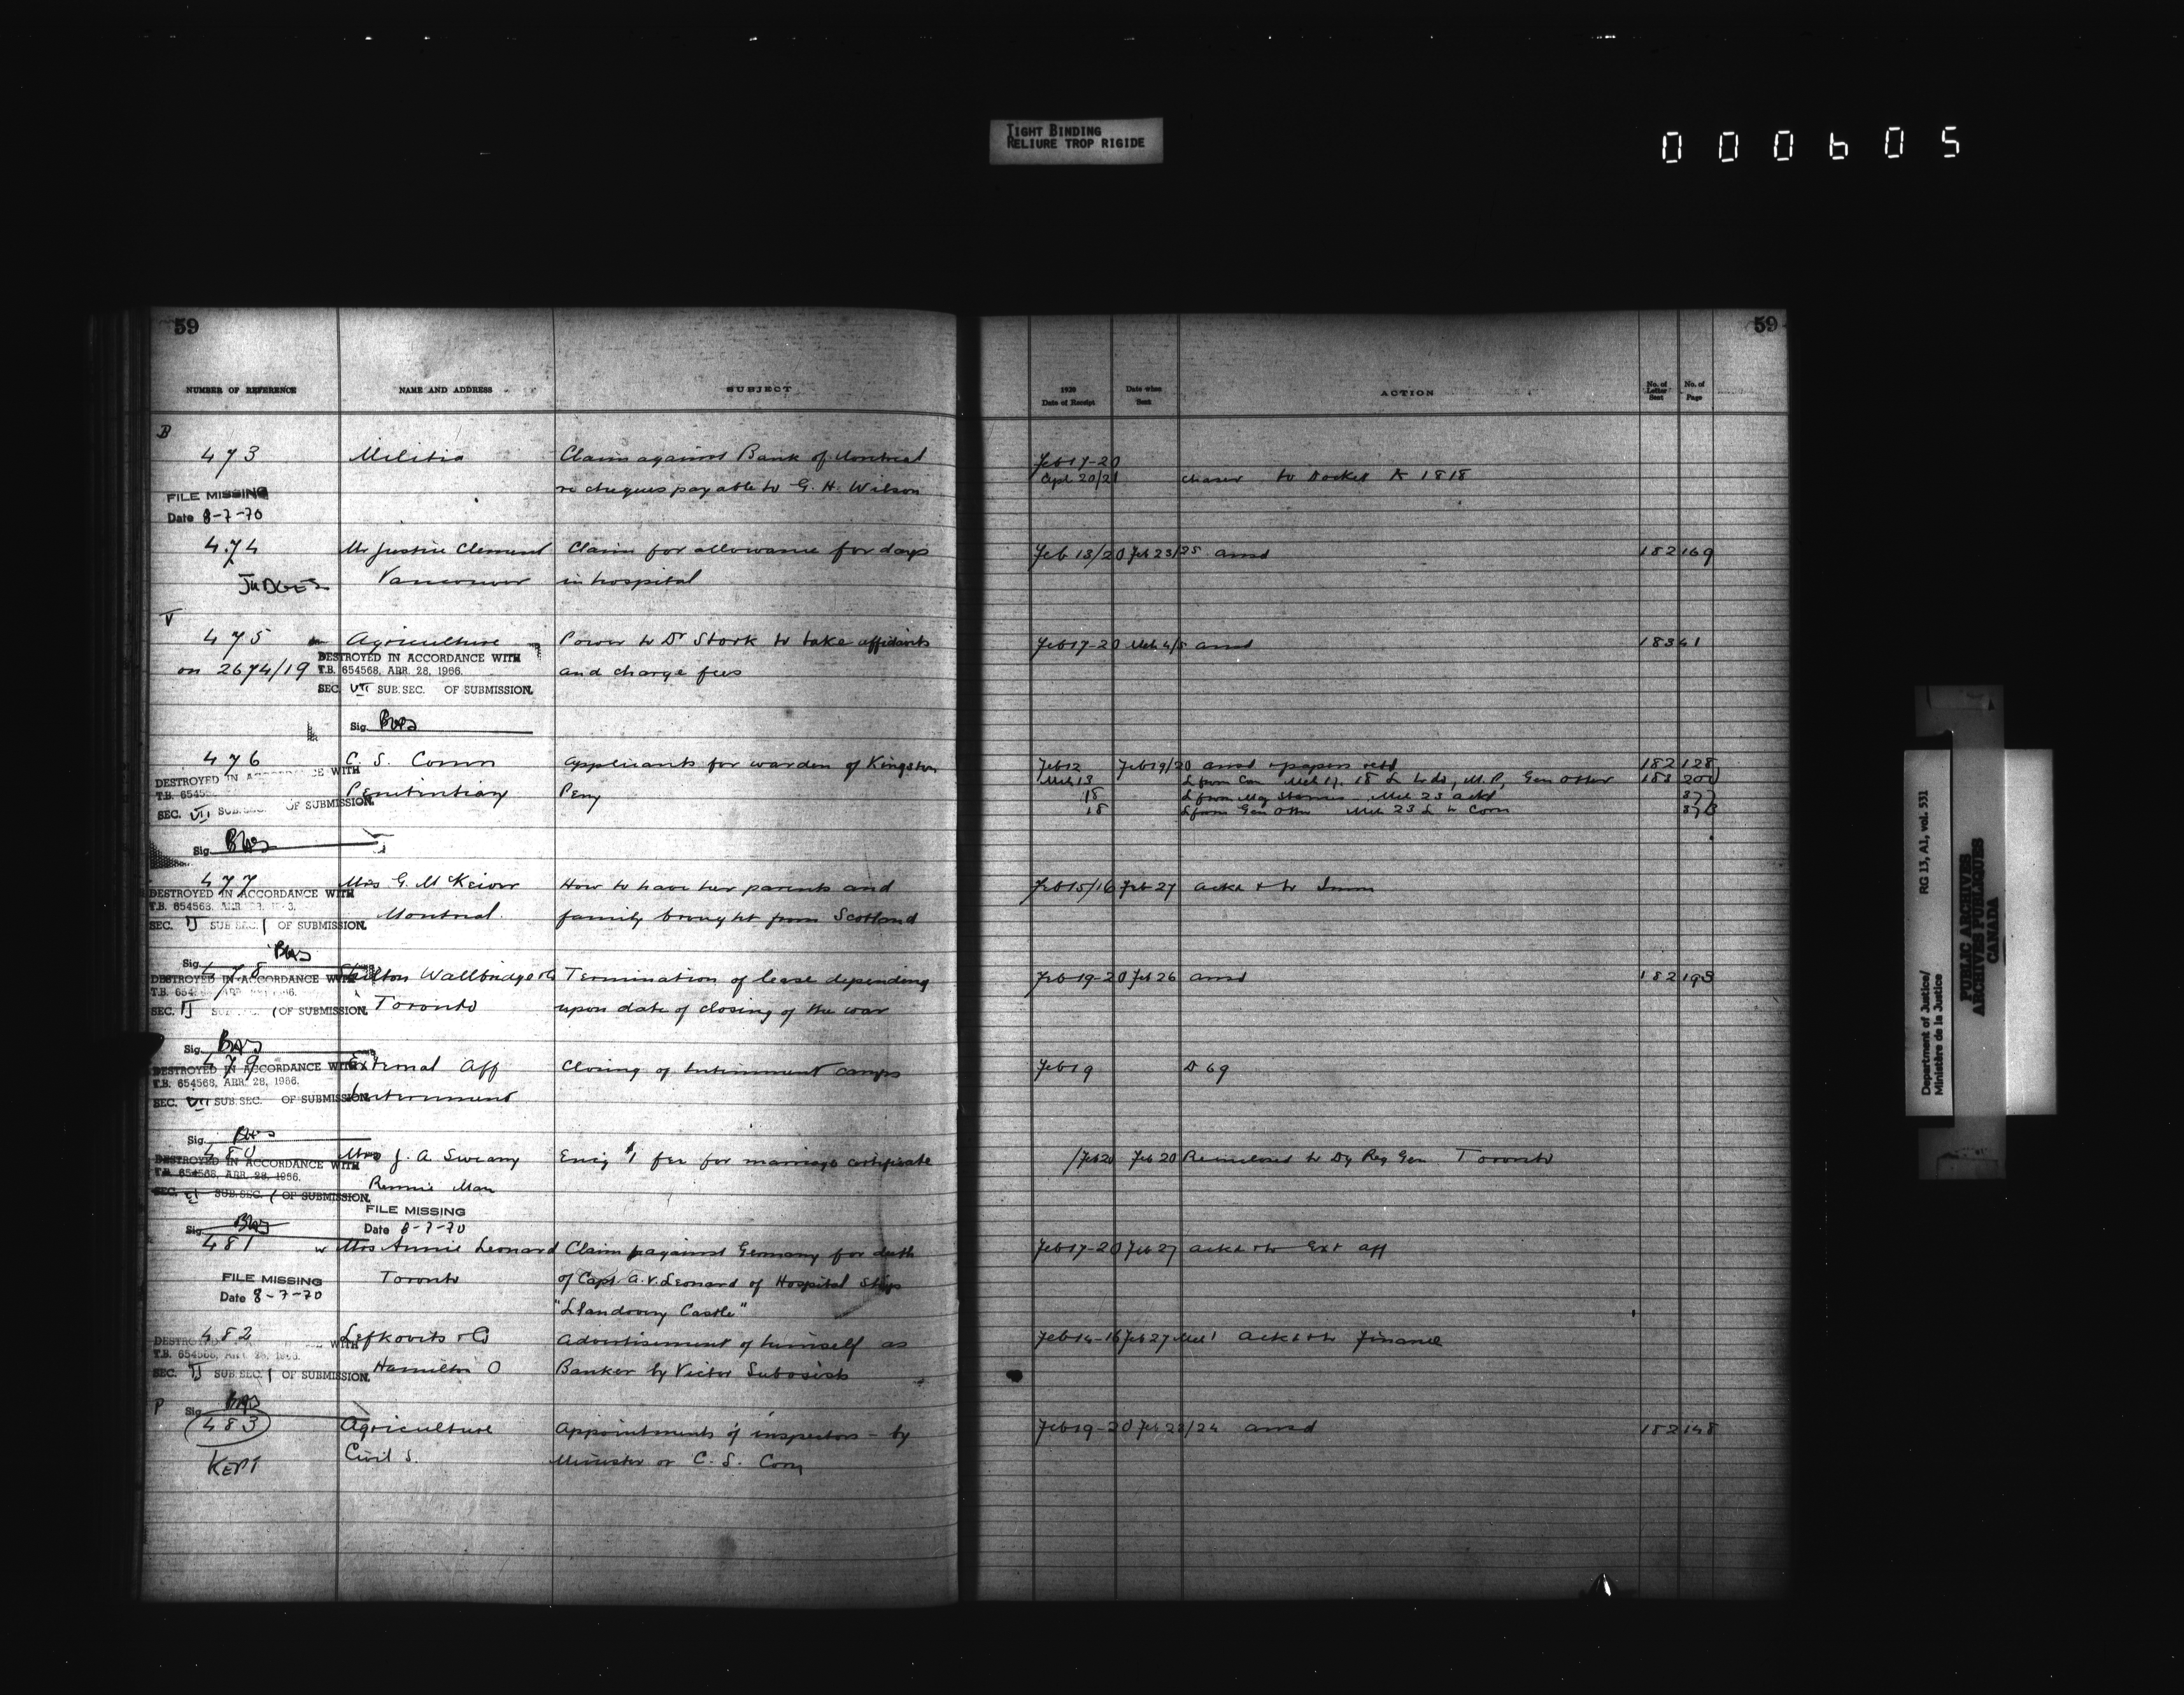 TIGHT BINDING
RELIURE TROP RIGIDE
000605
59
NUMBER OF REFERENCE NAME AND ADDRESS SUBJECT
B
473 Militia Claim against Bank of Montreal
re cheques payable to G. H. Wilson
FILE MISSING
Date 8-7-70
474 Mr Justice Clement Claim for allowance for days
JUDGES Vancouver in hospital
V
475 Agriculture Power to Dr Stork to take affidavits
on 2674/19 and charge fees
DESTROYED IN ACCORDANCE WITH
T.B. 654568, APR. 28, 1966.
SEC. VII SUB.SEC. OF SUBMISSION.
Sig.
476 C. S. Comm Applicants for warden of Kingston
Penitentiary Peny
DESTROYED IN ACCORDANCE WITH
T.B. 6545
SEC. VII SUB.SEC. OF SUBMISSION.
Sig.
477 Mrs G. McKeiver How to have her parents and
Montreal. family brought from Scotland
DESTROYED IN ACCORDANCE WITH
T.B. 654568, APR.
SEC. II SUB SEC. 1 OF SUBMISSION.
Sig.
478 Wallbridge & Co Termination of lease depending
Toronto upon date of closing of the war
DESTROYED IN ACCORDANCE WITH
SEC. II SUB. 1 OF SUBMISSION.
Sig.
479 External Aff Closing of Internment camps
Internment
DESTROYED IN ACCORDANCE WITH
T.B. 654568, APR. 28, 1966.
SEC. VII SUB.SEC. OF SUBMISSION.
Sig.
480 Mrs J. A Sweany Encig $1 fee for marriage certificate
Rennie Man
DESTROYED IN ACCORDANCE WITH
T.B. 654568, APR. 28, 1966.
SEC. SUB.SEC. 1 OF SUBMISSION.
FILE MISSING
Date 8-7-70
Sig.
481 Mrs Annie Leonard Claim against Germany for death
Toronto of Capt. A. V. Leonard of Hospital Ship
"Llandovery Castle"
FILE MISSING
Date 8-7-70
482 Lefkovits & Co Advertisement of himself as
Hamilton O Banker by Victor Subosits
DESTROYED WITH
T.B. 654568, APR. 28, 1966.
SEC. II SUB SEC. 1 OF SUBMISSION.
Sig.
P
483 Agriculture Appointments of inspectors - by
KEPT Civil S. Minister or C. S. Com
59
1920
Date of Receipt Date when Sent ACTION No. of Letter Sent No. of Page
Feb 17-20
Apl 20/21 chaser to Docket A 1818
Feb 13/20 Feb 23/25 ansd 182 169
Feb 17-20 Mch 4/5 ansd 183 41
Feb 12 Feb 19/20 ansd & papers retd 182 128
Mch 13 L from Com Mch 17, 18 L to do, M.P, Gen Otter 183 200
18 L from Maj Mch 23 ackd 377
18 L from Gen Otter Mch 23 L to Com 378
Feb 15/16 Feb 27 ackd & to Imm
Feb 19-20 Feb 26 ansd 182 193
Feb 19 D 69
Feb 20 Feb 20 Reinclosed to Dy Reg Gen Toronto
Feb 17-20 Feb 27 ackd & to Ext Aff
Feb 14-16 Feb 27 Mch 1 ackd & to Finance
Feb 19-20 Feb 23/24 ansd 182 148
Department of Justice/ RG 13, A1, vol. 531
Ministère de la Justice
PUBLIC ARCHIVES
ARCHIVES PUBLIQUES
CANADA